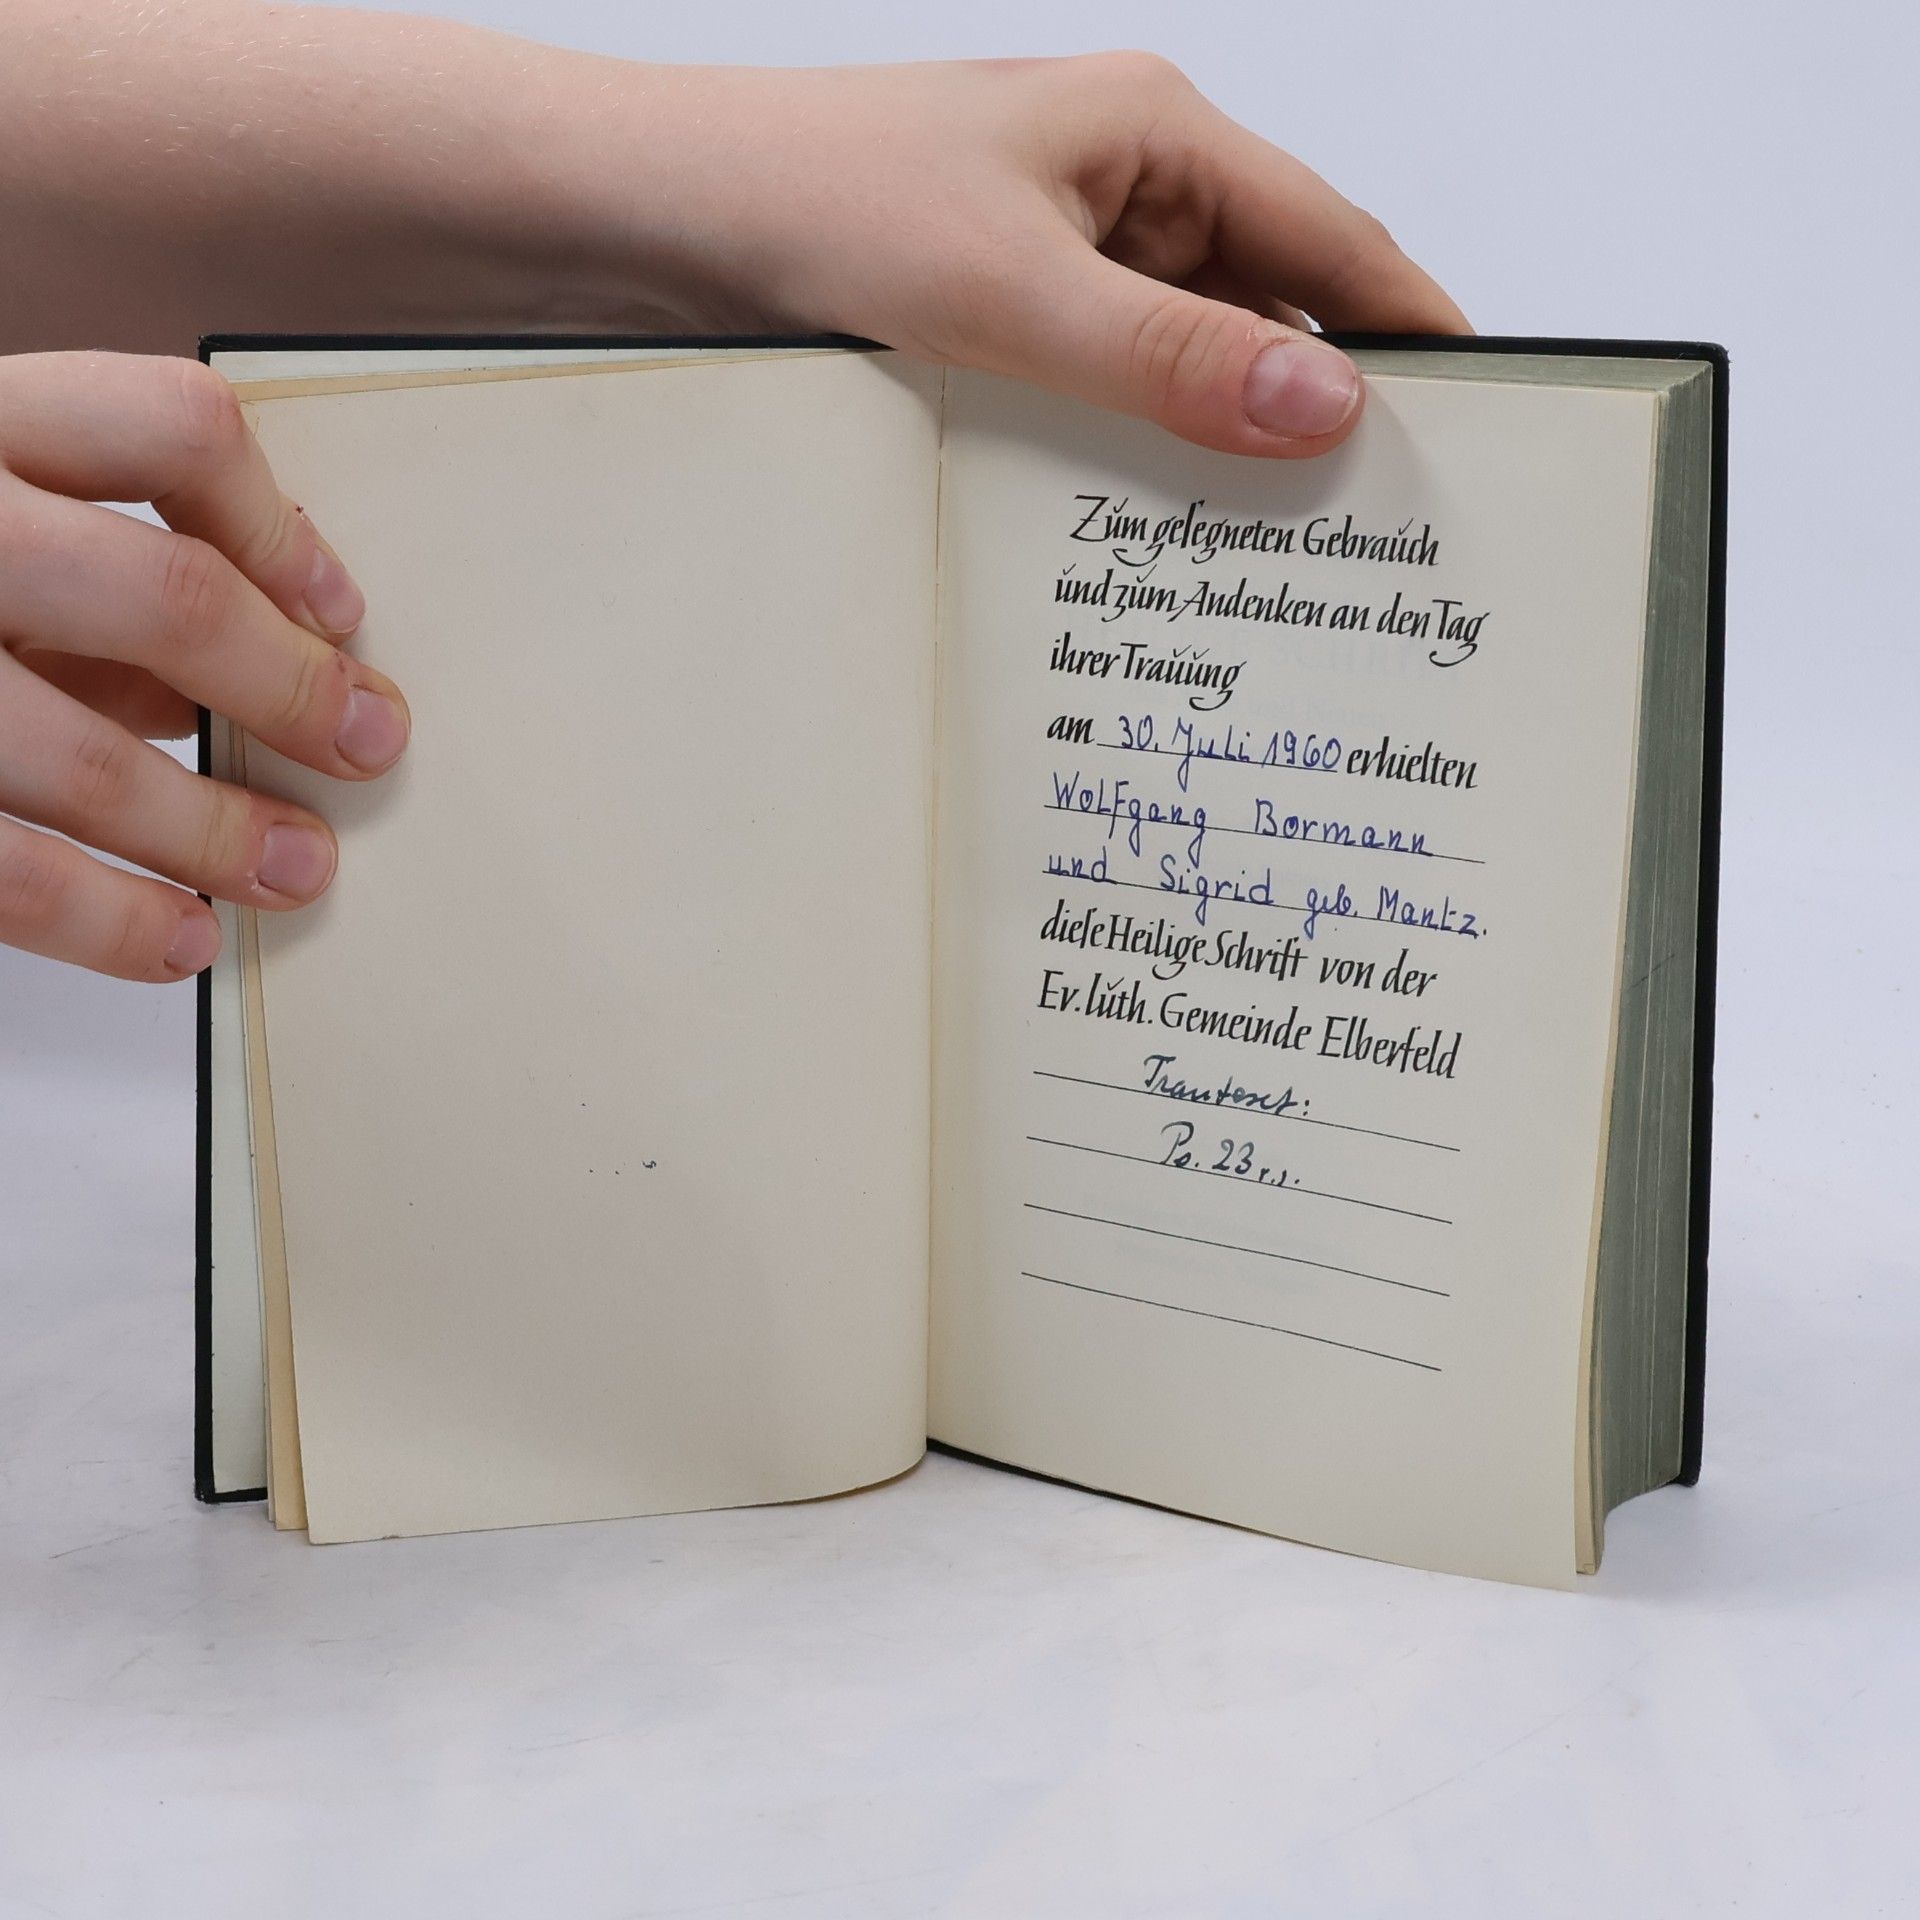 Zum geſegneten Gebrauch
und zum Andenken an den Tag
ihrer Trauung
am 30. Juli 1960 erhielten
Wolfgang Bormann
und Sigrid geb. Mantz.
dieſe Heilige Schrift von der
Ev. luth. Gemeinde Elberfeld
Trautext:
Ps. 23